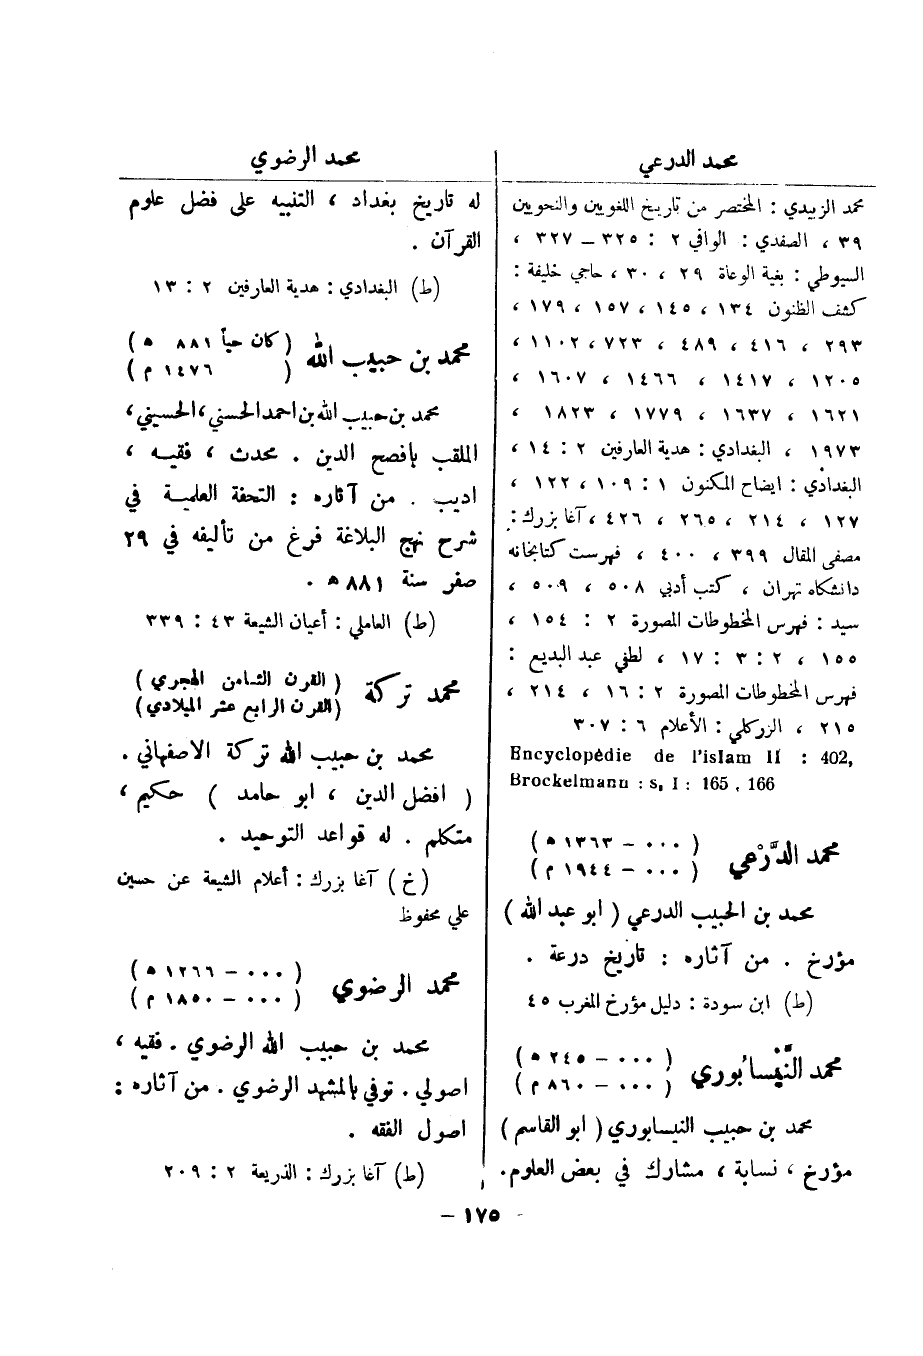 محمد الدرعي
محمد الزبيدي : المختصر من تاريخ اللغويين والنحويين
٣٩ ، الصفدي : الوافي ٢ : ٣٢٥ــ ٣٢٧ ،
السيوطي : بغية الوعاة ٢٩ ، ٣٠ ، حاجي خليفة :
كشف الظنون ١٣٤ ، ١٤٥ ، ١٥٧ ، ١٧٩ ،
٢٩٣ ، ٤١٦ ، ٤٨٩ ، ٧٢٣ ، ١١٠٢ ،
١٢٠٥ ، ١٤١٧ ، ١٤٦٦ ، ١٦٠٧ ،
١٦٢١ ، ١٦٣٧ ، ١٧٧٩ ، ١٨٢٣ ،
١٩٧٣ ، البغدادي : هدية العارفين ٢ : ١٤ ،
البغدادي : ايضاح المكنون ١ : ١٠٩ ، ١٢٢ ،
١٢٧ ، ٢١٤ ، ٢٦٥ ، ٤٢٦ ، آغا بزرك :
مصفى المقال ٣٩٩ ، ٤٠٠ ، فهرست كتابخانه
دانشكاه تهران ، كتب أدبي ٥٠٨ ، ٥٠٩ ،
سيد : فهرس المخطوطات المصورة ٢ : ١٥٤ ،
١٥٥ ، ٢ : ٣ : ١٧ ، لطفي عبد البديع :
فهرس المخطوطات المصورة ٢ : ١٦ ، ٢١٤ ،
٢١٥ ، الزركلي : الأعلام ٦ : ٣٠٧
Encyclopédie de l'islam II : 402,
Brockelmann : s, I : 165 , 166
محمد الدَّرْعي ( ٠٠٠ – ١٣٦٣ ه )
( ٠٠٠ – ١٩٤٤ م )
محمد بن الحبيب الدرعي ( ابو عبد الله )
مؤرخ . من آثاره : تاريخ درعة .
(ط) ابن سودة : دليل مؤرخ المغرب ٤٥
محمد النَّيْسابوري ( ٠٠٠ – ٢٤٥ ه )
( ٠٠٠ – ٨٦٠ م )
محمد بن حبيب النيسابوري ( ابو القاسم )
مؤرخ ، نسابة ، مشارك في بعض العلوم.
محمد الرضوي
له تاريخ بغداد ، التنبيه على فضل علوم
القرآن .
(ط) البغدادي : هدية العارفين ٢ : ١٣
محمد بن حبيب الله ( كان حياً ٨٨١ ه )
( ١٤٧٦ م )
محمد بن حبيب الله بن احمد الحسني ، الحسيني ،
الملقب بافصح الدين . محدث ، فقيه ،
اديب . من آثاره : التحفة العلمية في
شرح نهج البلاغة فرغ من تأليفه في ٢٩
صفر سنة ٨٨١ ه .
(ط) العاملي : أعيان الشيعة ٤٣ : ٣٣٩
محمد تركة ( القرن الثامن الهجري )
(القرن الرابع عشر الميلادي)
محمد بن حبيب الله تركة الاصفهاني .
( افضل الدين ، ابو حامد ) حكيم ،
متكلم . له قواعد التوحيد .
(خ) آغا بزرك : أعلام الشيعة عن حسين
علي محفوظ
محمد الرضوي ( ٠٠٠ – ١٢٦٦ ه )
( ٠٠٠ – ١٨٥٠ م )
محمد بن حبيب الله الرضوي . فقيه ،
اصولي . توفي بالمشهد الرضوي . من آثاره :
اصول الفقه .
(ط) آغا بزرك : الذريعة ٢ : ٢٠٩
- ١٧٥ –